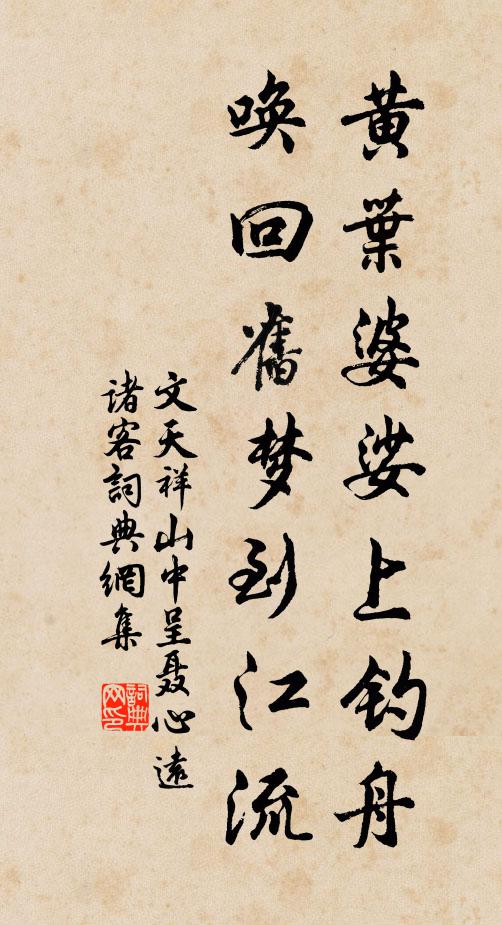 黄葉婆娑上钓舟
唤回舊梦到江流
文天祥山中呈聂心遠
诸客詞典網集
詞典网印